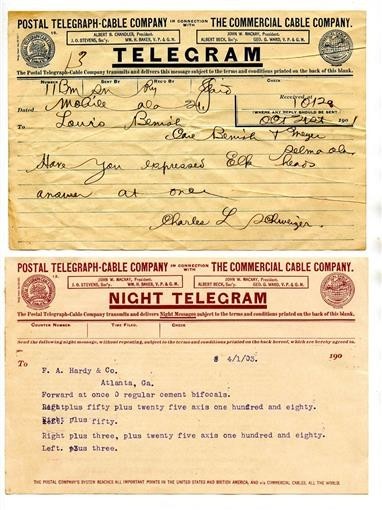 POSTAL TELEGRAPH-CABLE COMPANY IN CONNECTION WITH THE COMMERCIAL CABLE COMPANY.
ALBERT B. CHANDLER, President. JOHN W. MACKAY, President.
J. O. STEVENS, Sec'y. WM. H. BAKER, V. P. & G. M. ALBERT BECK, Sec'y. GEO. G. WARD, V. P. & G. M.
TELEGRAM
The Postal Telegraph-Cable Company transmits and delivers this message subject to the terms and conditions printed on the back of this blank.
13
Paid
Received at
Dated Mobile ala 24
(WHERE ANY REPLY SHOULD BE SENT)
To Louis Benish Oct 21st 190
Care Benish & Meyer
Selma ala
Have you expressed Elk heads
answer at once
Charles L Schweizer.
POSTAL TELEGRAPH-CABLE COMPANY IN CONNECTION WITH THE COMMERCIAL CABLE COMPANY.
JOHN W. MACKAY, President. JOHN W. MACKAY, President.
J. O. STEVENS, Sec'y. WM. H. BAKER, V. P. & G. M. ALBERT BECK, Sec'y. GEO. G. WARD, V. P. & G. M.
NIGHT TELEGRAM
The Postal Telegraph-Cable Company transmits and delivers Night Messages subject to the terms and conditions printed on the back of this blank.
COUNTER NUMBER. TIME FILED. CHECK
Send the following night message, without repeating, subject to the terms and conditions printed on the back hereof, which are hereby agreed to.
4/1/03. 190
To F. A. Hardy & Co.
Atlanta, Ga.
Forward at once 0 regular cement bifocals.
Right plus fifty plus twenty five axis one hundred and eighty.
Left. plus fifty.
Right plus three, plus twenty five axis one hundred and eighty.
Left. plus three.
THE POSTAL COMPANY'S SYSTEM REACHES ALL IMPORTANT POINTS IN THE UNITED STATES AND BRITISH AMERICA, AND via COMMERCIAL CABLES, ALL THE WORLD.